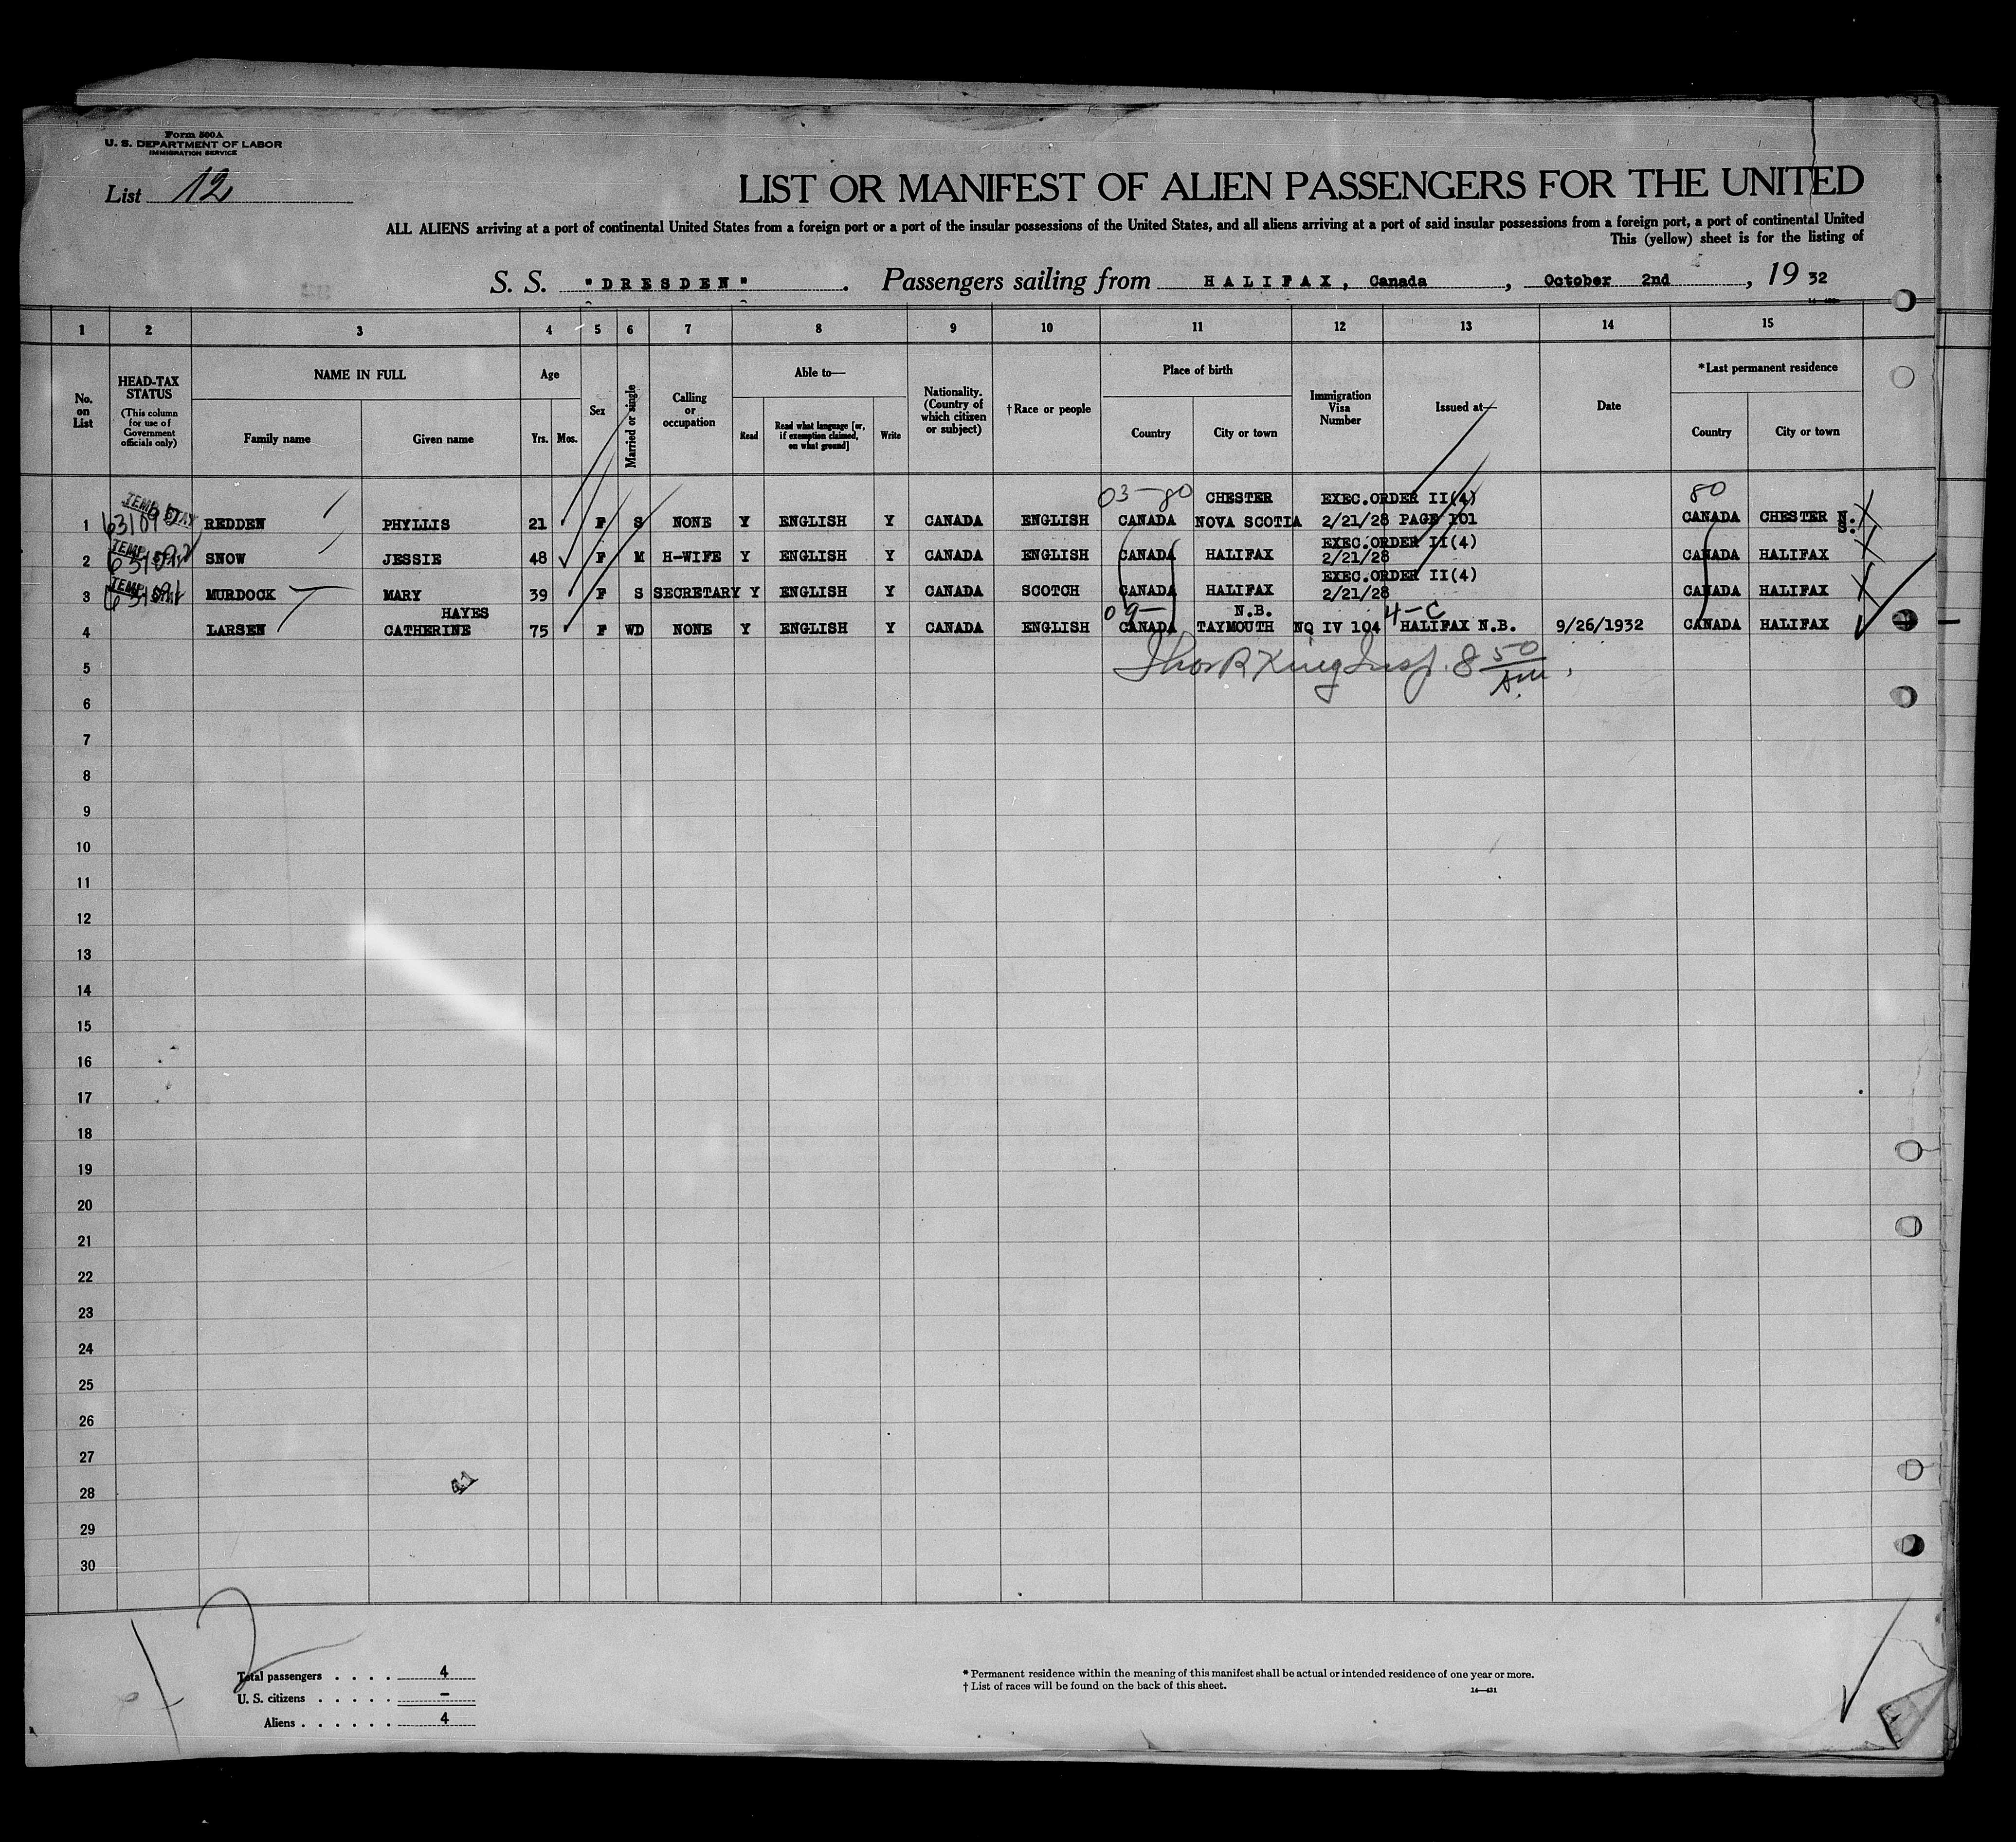 Form 500A
U. S. DEPARTMENT OF LABOR
IMMIGRATION SERVICE
List 12
LIST OR MANIFEST OF ALIEN PASSENGERS FOR THE UNITED
ALL ALIENS arriving at a port of continental United States from a foreign port or a port of the insular possessions of the United States, and all aliens arriving at a port of said insular possessions from a foreign port, a port of continental United
This (yellow) sheet is for the listing of
S. S. "DRESDEN" . Passengers sailing from HALIFAX, Canada , October 2nd , 19 32
1 2 3 4 5 6 7 8 9 10 11 12 13 14 15
No. on List
HEAD-TAX STATUS (This column for use of Government officials only)
NAME IN FULL
Family name Given name
Age
Yrs. Mos.
Sex
Married or single
Calling or occupation
Able to—
Read
Read what language [or, if exemption claimed, on what ground]
Write
Nationality. (Country of which citizen or subject)
† Race or people
Place of birth
Country City or town
Immigration Visa Number
Issued at—
Date
*Last permanent residence
Country City or town
TEMP STAY 03-80 CHESTER EXEC.ORDER II(4) 80
1 REDDEN PHYLLIS 21 F S NONE Y ENGLISH Y CANADA ENGLISH CANADA NOVA SCOTIA 2/21/28 PAGE 101 CANADA CHESTER N.S.
EXEC.ORDER II(4)
2 SNOW JESSIE 48 F M H-WIFE Y ENGLISH Y CANADA ENGLISH CANADA HALIFAX 2/21/28 CANADA HALIFAX
EXEC.ORDER II(4)
3 MURDOCK MARY 39 F S SECRETARY Y ENGLISH Y CANADA SCOTCH CANADA HALIFAX 2/21/28 CANADA HALIFAX
HAYES 09- N.B. 4-C
4 LARSEN CATHERINE 75 F WD NONE Y ENGLISH Y CANADA ENGLISH CANADA TAYMOUTH NQ IV 104 HALIFAX N.B. 9/26/1932 CANADA HALIFAX
5 Thos R King Insp. 8 50 AM.
6
7
8
9
10
11
12
13
14
15
16
17
18
19
20
21
22
23
24
25
26
27
28
29
30
2
Total passengers . . . . 4
U. S. citizens . . . . . –
Aliens . . . . . . 4
* Permanent residence within the meaning of this manifest shall be actual or intended residence of one year or more.
† List of races will be found on the back of this sheet.
14—431